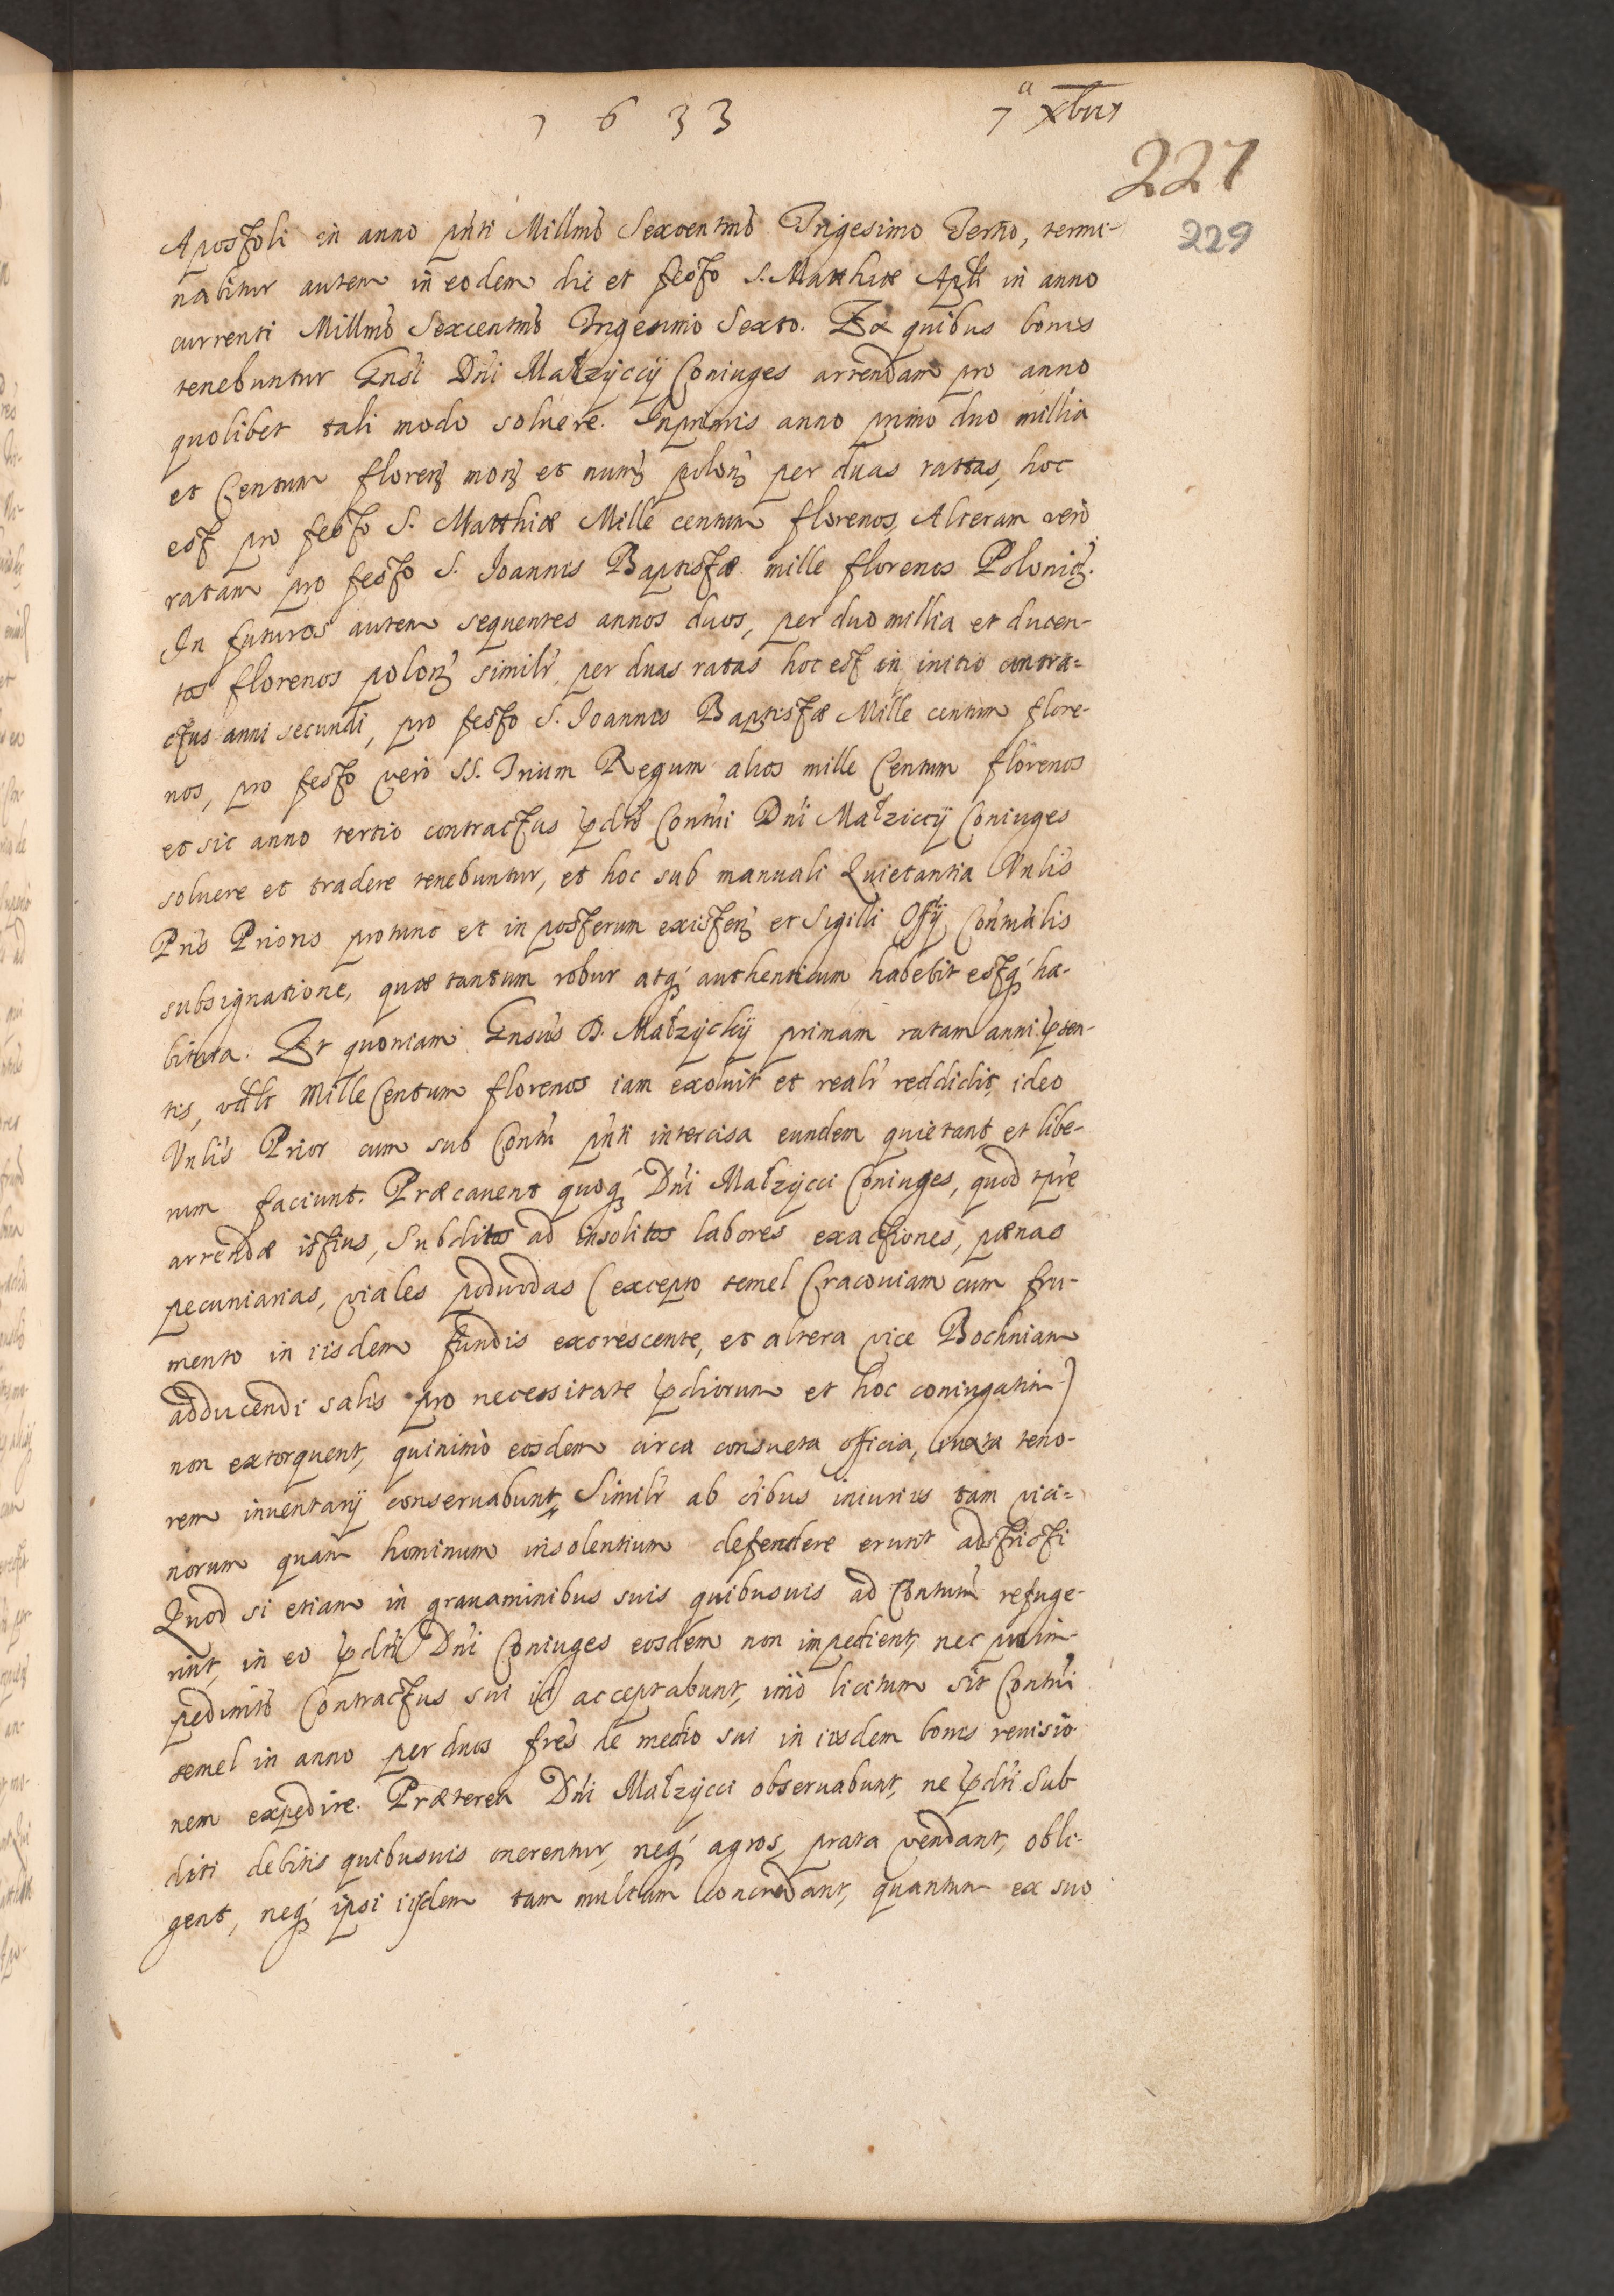 1633
7ᵃ Xbris
227
229
Apostoli in anno pñti Millmô Sexcentmô Trigesimo Tertio, termi-
nabitur autem in eodem die et festo S. Matthiæ Apłi in anno
currenti Millmô Sexcentmô Trigesimo Sexto. Ex quibus bonis
tenebuntur Gnsi Dñi Małzyccÿ Coniuges arrendam pro anno
quolibet tali modo soluere. Inprimis anno primo duo millia
et Centum florenꝫ monꝫ et numꝫ polonꝫ per duas rattas, hoc
est pro festo S. Matthiæ Mille centum florenos, Alteram verò
ratam pro festo S. Joannis Baptistæ mille florenos Poloniꝫ.
In futuros autem sequentes annos duos, per duo millia et ducen-
tos florenos polonꝫ similr, per duas ratas hoc est in initio contra=
ctus anni secundi, pro festo S. Joannis Baptistæ Mille centum flore-
nos, pro festo verò SS. Trium Regum alios mille Centum florenos
et sic anno tertio contractus pdto Contui Dñi Małziccÿ Coniuges
soluere et tradere tenebuntur, et hoc sub manuali Quietantia Vnlis
Pris Prioris protunc et in posterum existenꝫ et Sigilli Offÿ Conuualis
subsignatione, quæ tantum robur atqꝫ authenticum habebit estqꝫ ha-
bitura. Et quoniam Gnsus D. Małzyckÿ primam ratam anni psen-
tis, vdlt Mille Centum florenos iam exoluit et realr reddidit, ideo
Vnlis Prior cum suo Contu pñti intercisa eundem quietant et libe-
rum faciunt. Præcauent quoqꝫ Dñi Małzycci Coniuges, quod tpre
arrendæ istius, Subditos ad insolitos labores exactiones, pænas
pecuniarias, viales poduodas (excepto semel Cracouiam cum fru-
mento in iisdem fundis excrescente, et altera vice Bochniam
adducendi salis pro necessitate pdiorum et hoc coniugatim)
non extorquent, quinimò eosdem circa consueta officia, iuxta teno-
rem inventarÿ conseruabunt, Similr ab oibus iniurijs tam vici=
norum quam hominum insolentium defendere erunt adstricti
Quod si etiam in grauaminibus suis quibusuis ad Contum refuge-
rint, in eo pdti Dñi Coniuges eosdem non impedient, nec pro im-
pedimto Contractus sui id acceptabunt, imò licitum sit Contui
semel in anno per duos fres de medio sui in iisdem bonis reuisio
nem expedire. Præterea Dñi Małzycci obseruabunt, ne pdti Sub
diti debitis quibusuis onerentur, neqꝫ agros, prata vendant, obli-
gent, neqꝫ ipsi iisdem tam multum concredant, quantum ex suo